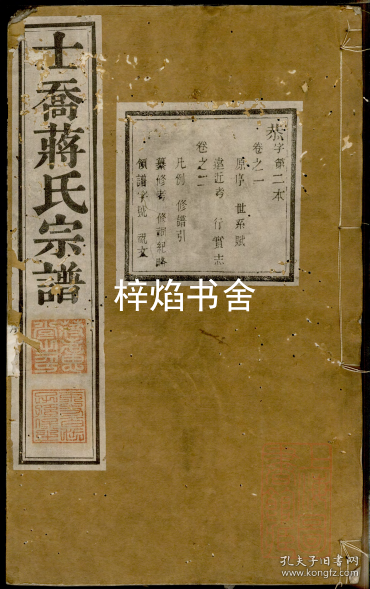 士喬蔣氏宗譜
恭字第二本
卷之一
原序 世系賦
遠近考 行實志
卷之二
凡例 修譜引
纂修考 修訓紀略
領譜字號 祝文
梓焰书舍
孔夫子旧书网
www.kongfz.com